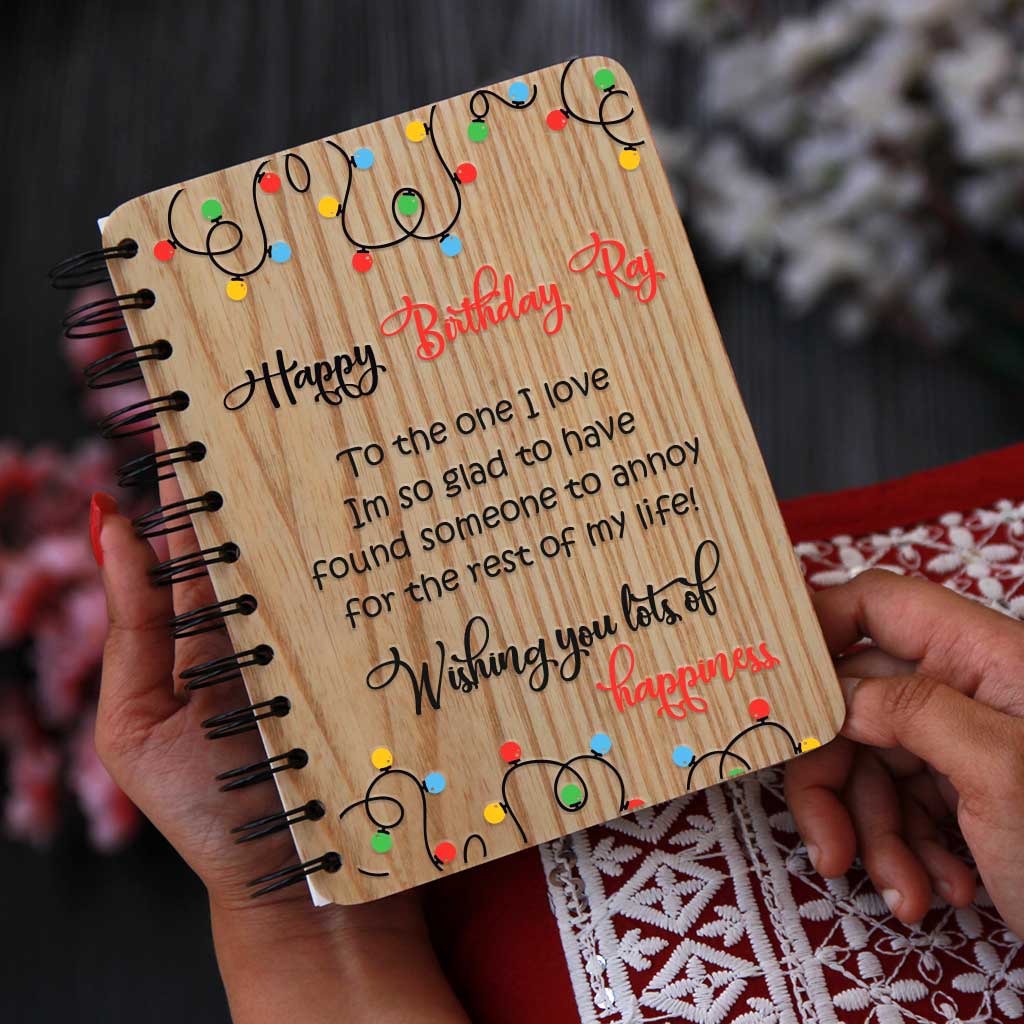 Happy Birthday Raj
To the one I love
Im so glad to have
found someone to annoy
for the rest of my life!
Wishing you lots of
happiness